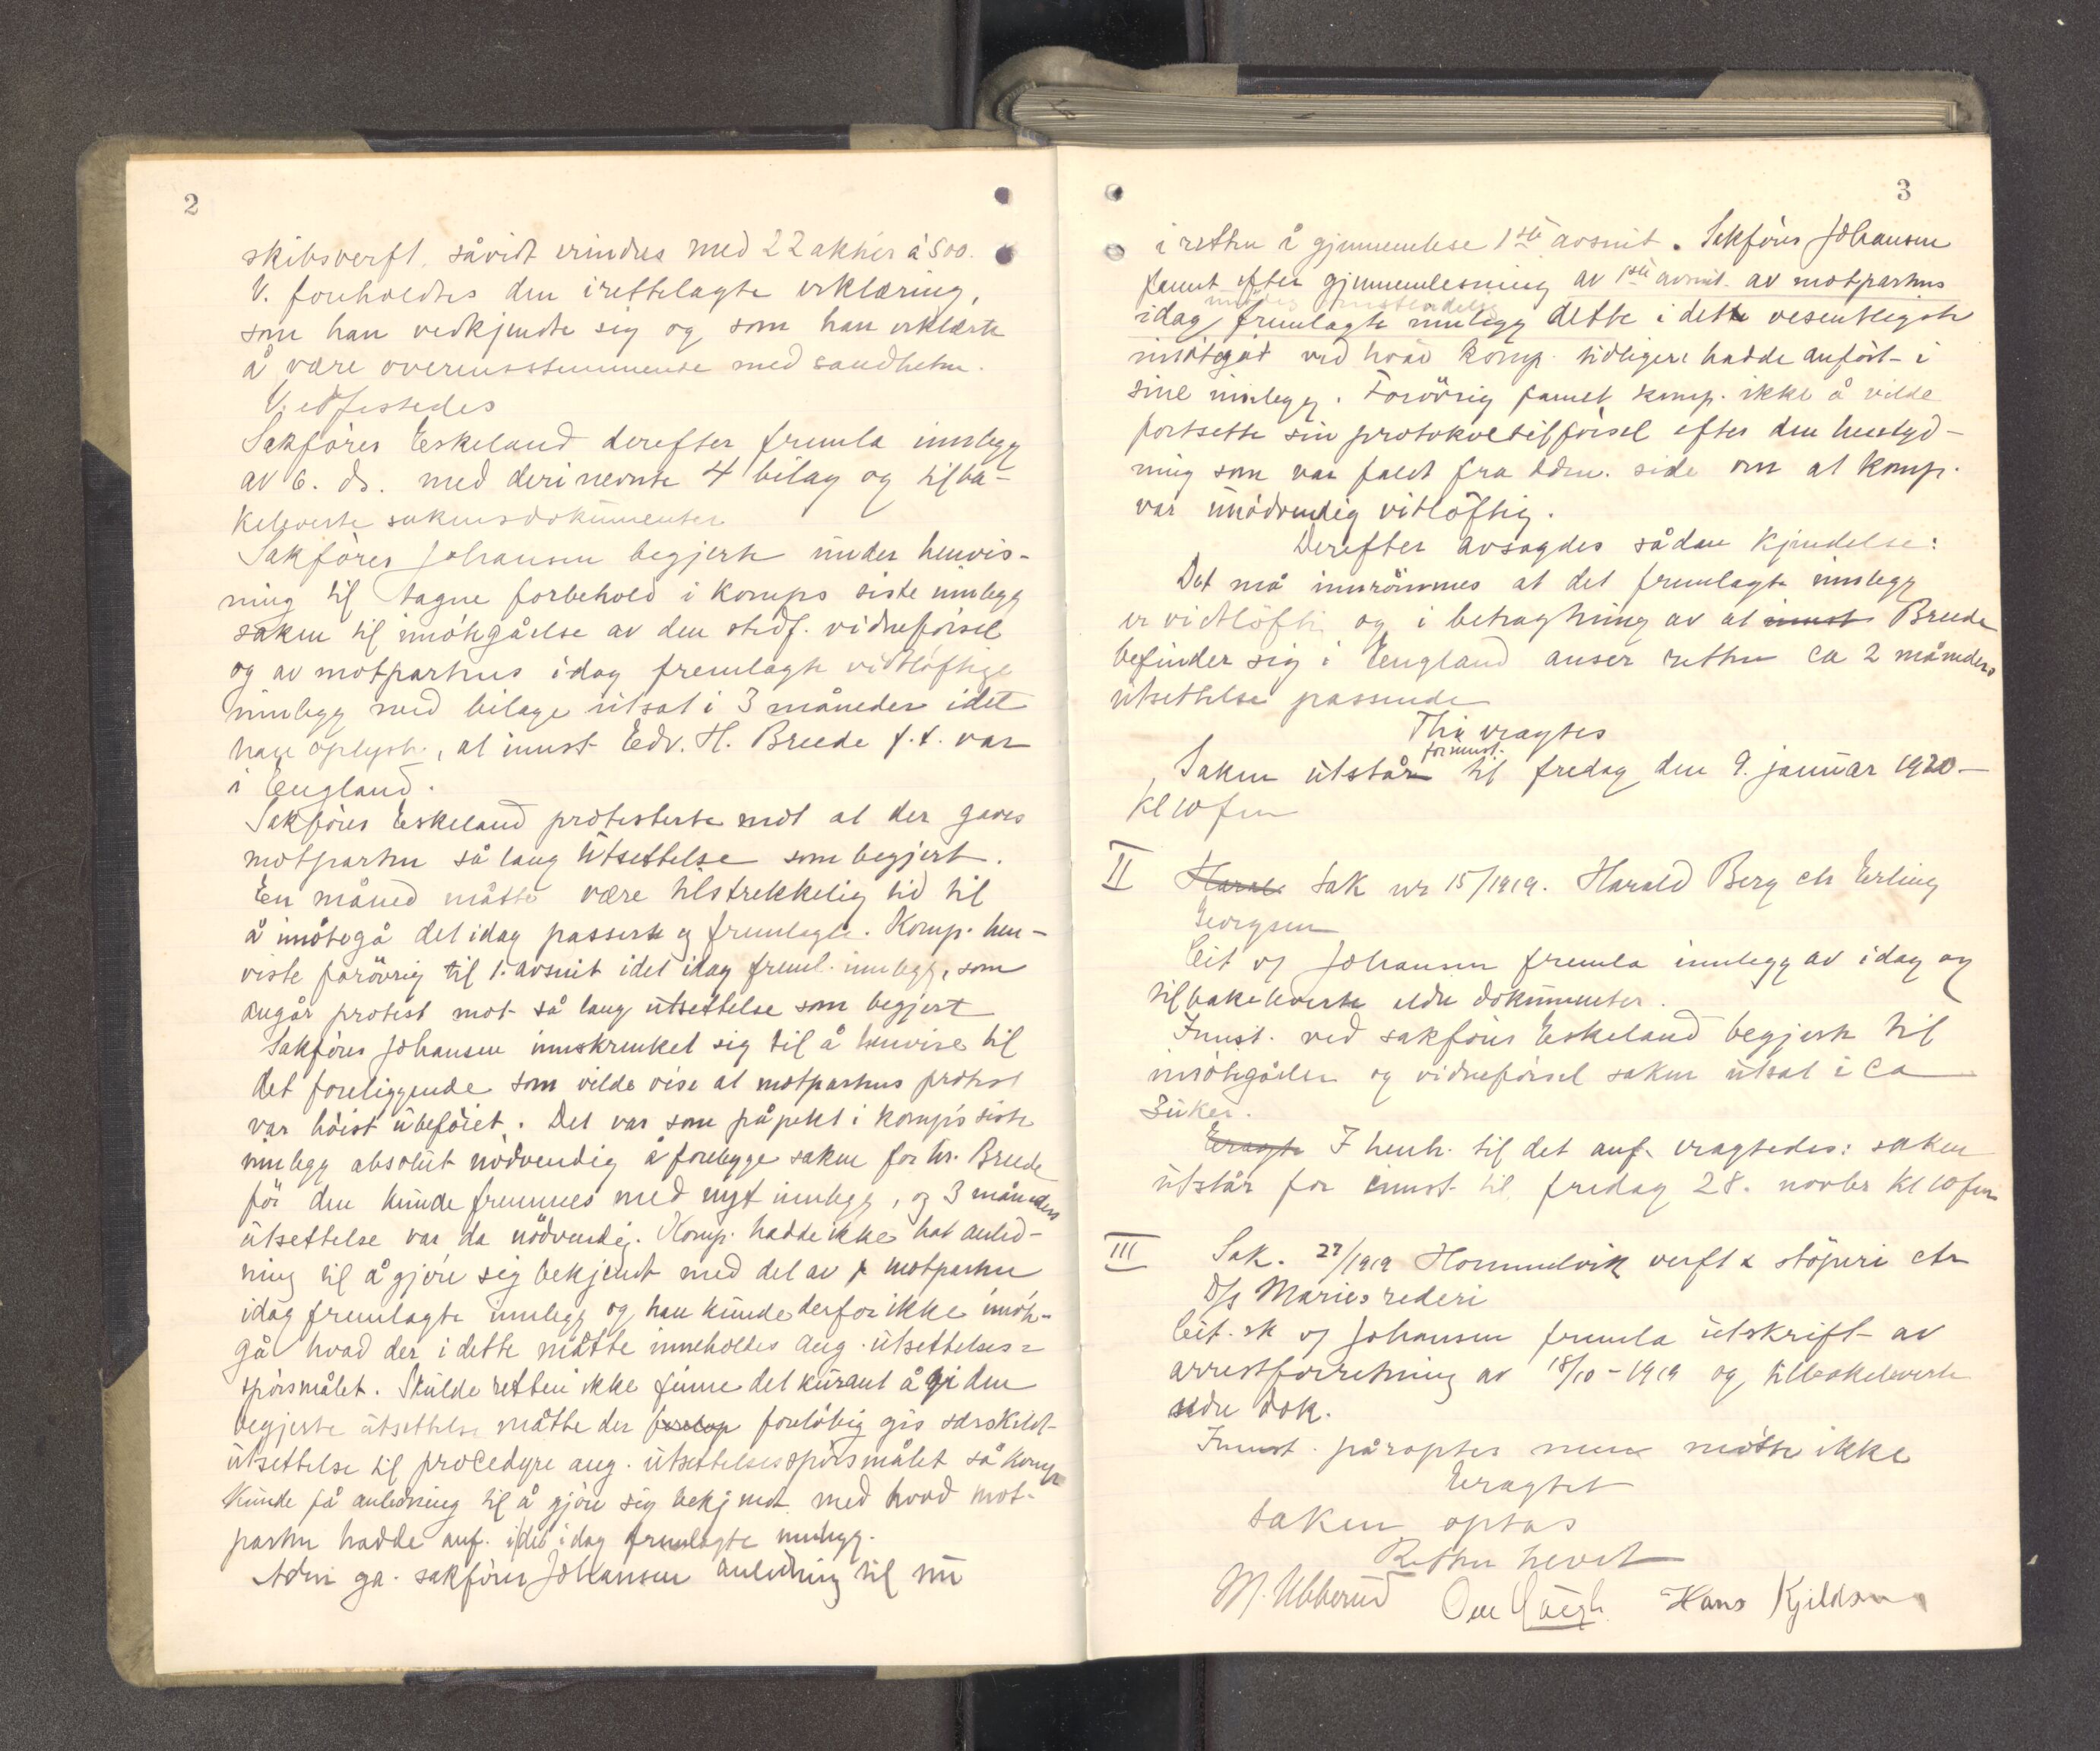 2
skibsverft, såvidt erindres med 22 aktier á 500.
V. foreholdtes den irettelagte erklæring,
som han vedkjendte sig og som han erklærte
å være overensstemmende med sandheten.
V. edfestedes
Sakfører Eskeland derefter fremla innlegg
av 6. ds. med deri nevnte 4 bilag og tilba-
keleverte saksens dokumenter
Sakfører Johansen begjerte under henvis-
ning til tagne forbehold i komps siste innlegg
saken til imøtegåelse av den stedf. vidneførsel
og av motpartens idag fremlagte vidtløftige
innlegg med bilage utsat i 3 måneder idet
han oplyste, at innst. Edv. H. Breede f.t. var
i England.
Sakfører Eskeland protesterte mot at der gaves
motparten så lang utsettelse som begjert.
En måned måtte være tilstrekkelig tid til
å imøtegå det idag passerte og fremlagte. Komp. hen-
viste forøvrig til 1. avsnit i det idag freml. innlegg, som
angår protest mot så lang utsettelse som begjert
Sakfører Johansen innskrenket sig til å henvise til
det foreliggende som vilde vise at motpartens protest
var høist ubeføiet. Det var som påpekt i komp's siste
innlegg absolut nødvendig å forelegge saken for hr. Breede
før den kunde fremmes med nyt innlegg, og 3 måneders
utsettelse var da nødvendig. Komp. hadde ikke hat anled-
ning til å gjøre sig bekjendt med det av motparten
idag fremlagte innlegg og han kunde derfor ikke imøte-
gå hvad der i dette måtte inneholdes ang. utsettelses=
spørsmålet. Skulde retten ikke finne det kurant å gi den
begjerte utsettelse måtte der foreløbig gis særskilt
utsettelse til procedyre ang. utsettelsesspørsmålet så komp
kunde få anledning til å gjøre sig bekjendt med hvad mot-
parten hadde anf. i det idag fremlagte innlegg.
Adm ga sakfører Johansen anledning til nu
3
i retten å gjennemlese 1ste avsnit. Sakfører Johansen
fannt efter gjennemlesning av 1ste avsnit av motpartens
idag fremlagte innlegg dette i det vesentligste
imøtegåt ved hvad komp. tidligere hadde anført i
sine innlegg. Forøvrig fannt komp. ikke å vilde
fortsette sin protokoltilførsel efter den henstyd-
ning som var faldt fra adm. side om at komp.
var unødvendig vitløftig.
Derefter avsagdes sådan kjendelse:
Det må innrømmes at det fremlagte innlegg
er vidtløftig og i betragtning av at innst. Breede
befinder sig i England anser retten ca 2 måneders
utsettelse passende
Thi eragtes
for innst.
Saken utstår til fredag den 9. januar 1920 -
kl 10 fm
II Harald Sak nr 15/1919. Harald Berg ctr Erling
Georgsen
Cit v/ Johansen fremla innlegg av idag og
tilbakeleverte eldre dokumenter.
Innst. ved sakfører Eskeland begjerte til
imøtegåelse og vidneførsel saken utsat i ca
3 uker.
Eragte I henh. til det anf. eragtedes: saken
utstår for innst. til fredag 28. novbr kl 10 fm
III Sak. 27/1919 Hommelvik verft & støperi ctr
D/s Maries rederi
Cit. sk v/ Johansen fremla utskrift av
arrestforretning av 18/10-1919 og tilbakeleverte
eldre dok.
Innst. påroptes men møtte ikke
Eragtet
saken optas
Retten hevet
M. Ubberud Hans Kjeldsen